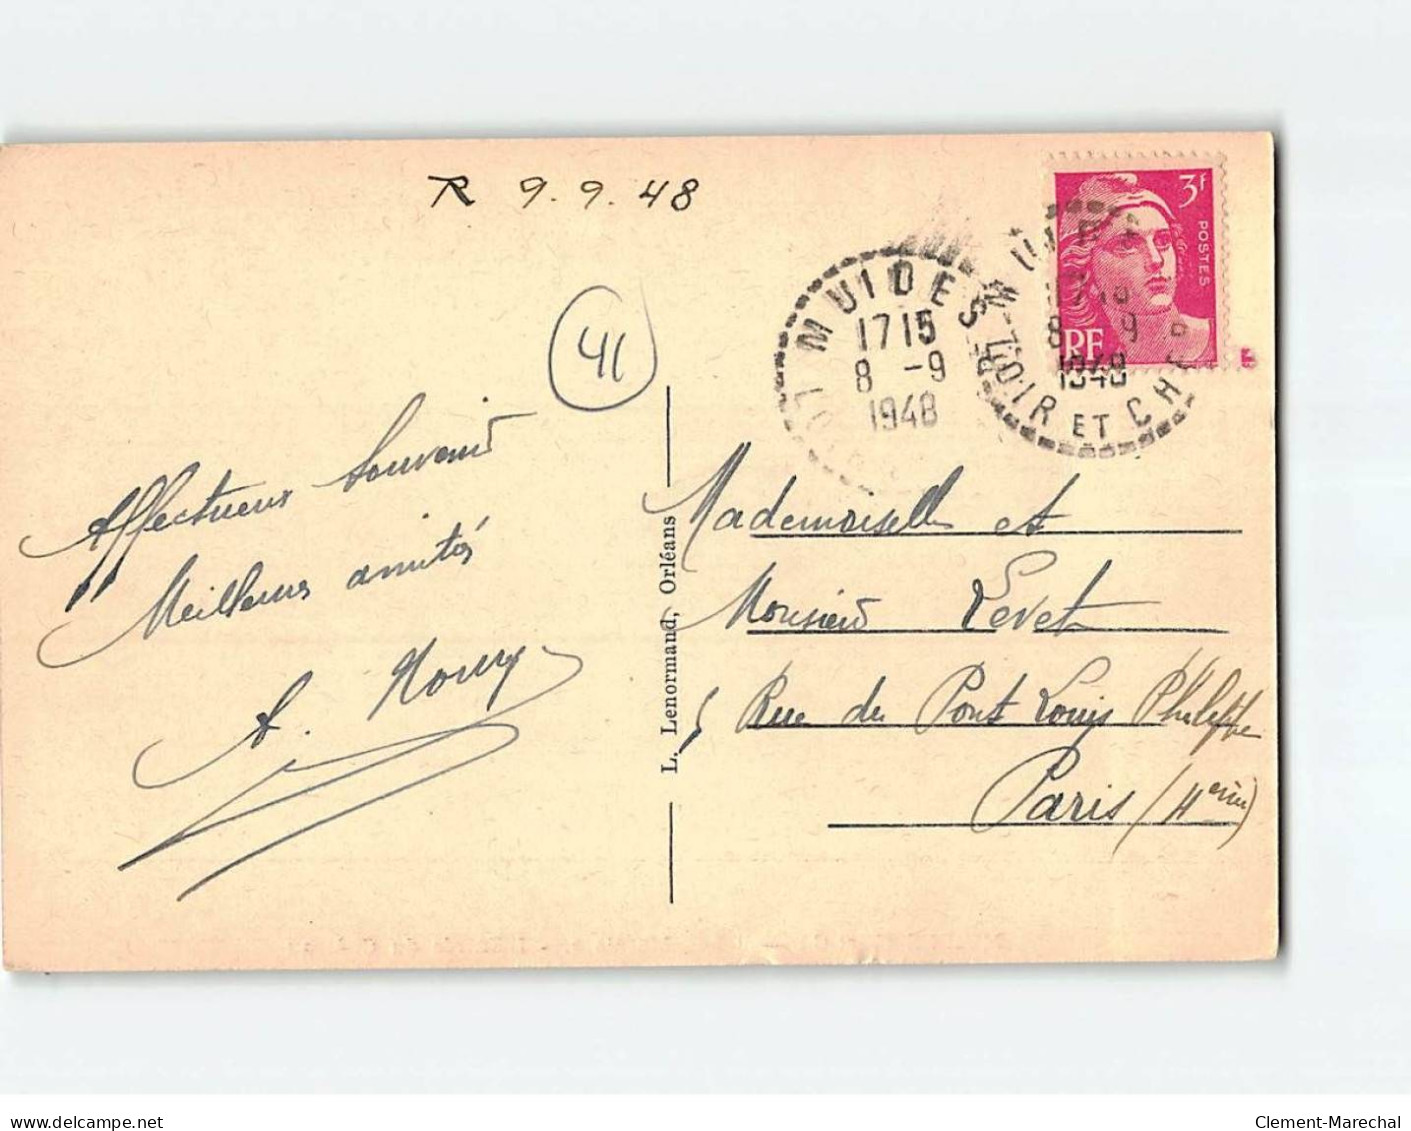 R 9.9.48
41
3F
POSTES
RF
MUIDES
1715
8 -9
1948
LOIR ET CHER
8 9
1948
Affectueux Souvenir
Meilleures amitiés
A.
L. Lenormand, Orléans
Mademoiselle et
Monsieur Levet
5 Rue du Pont Louis Philippe
Paris (4eme)
www.delcampe.net
Clement-Marechal